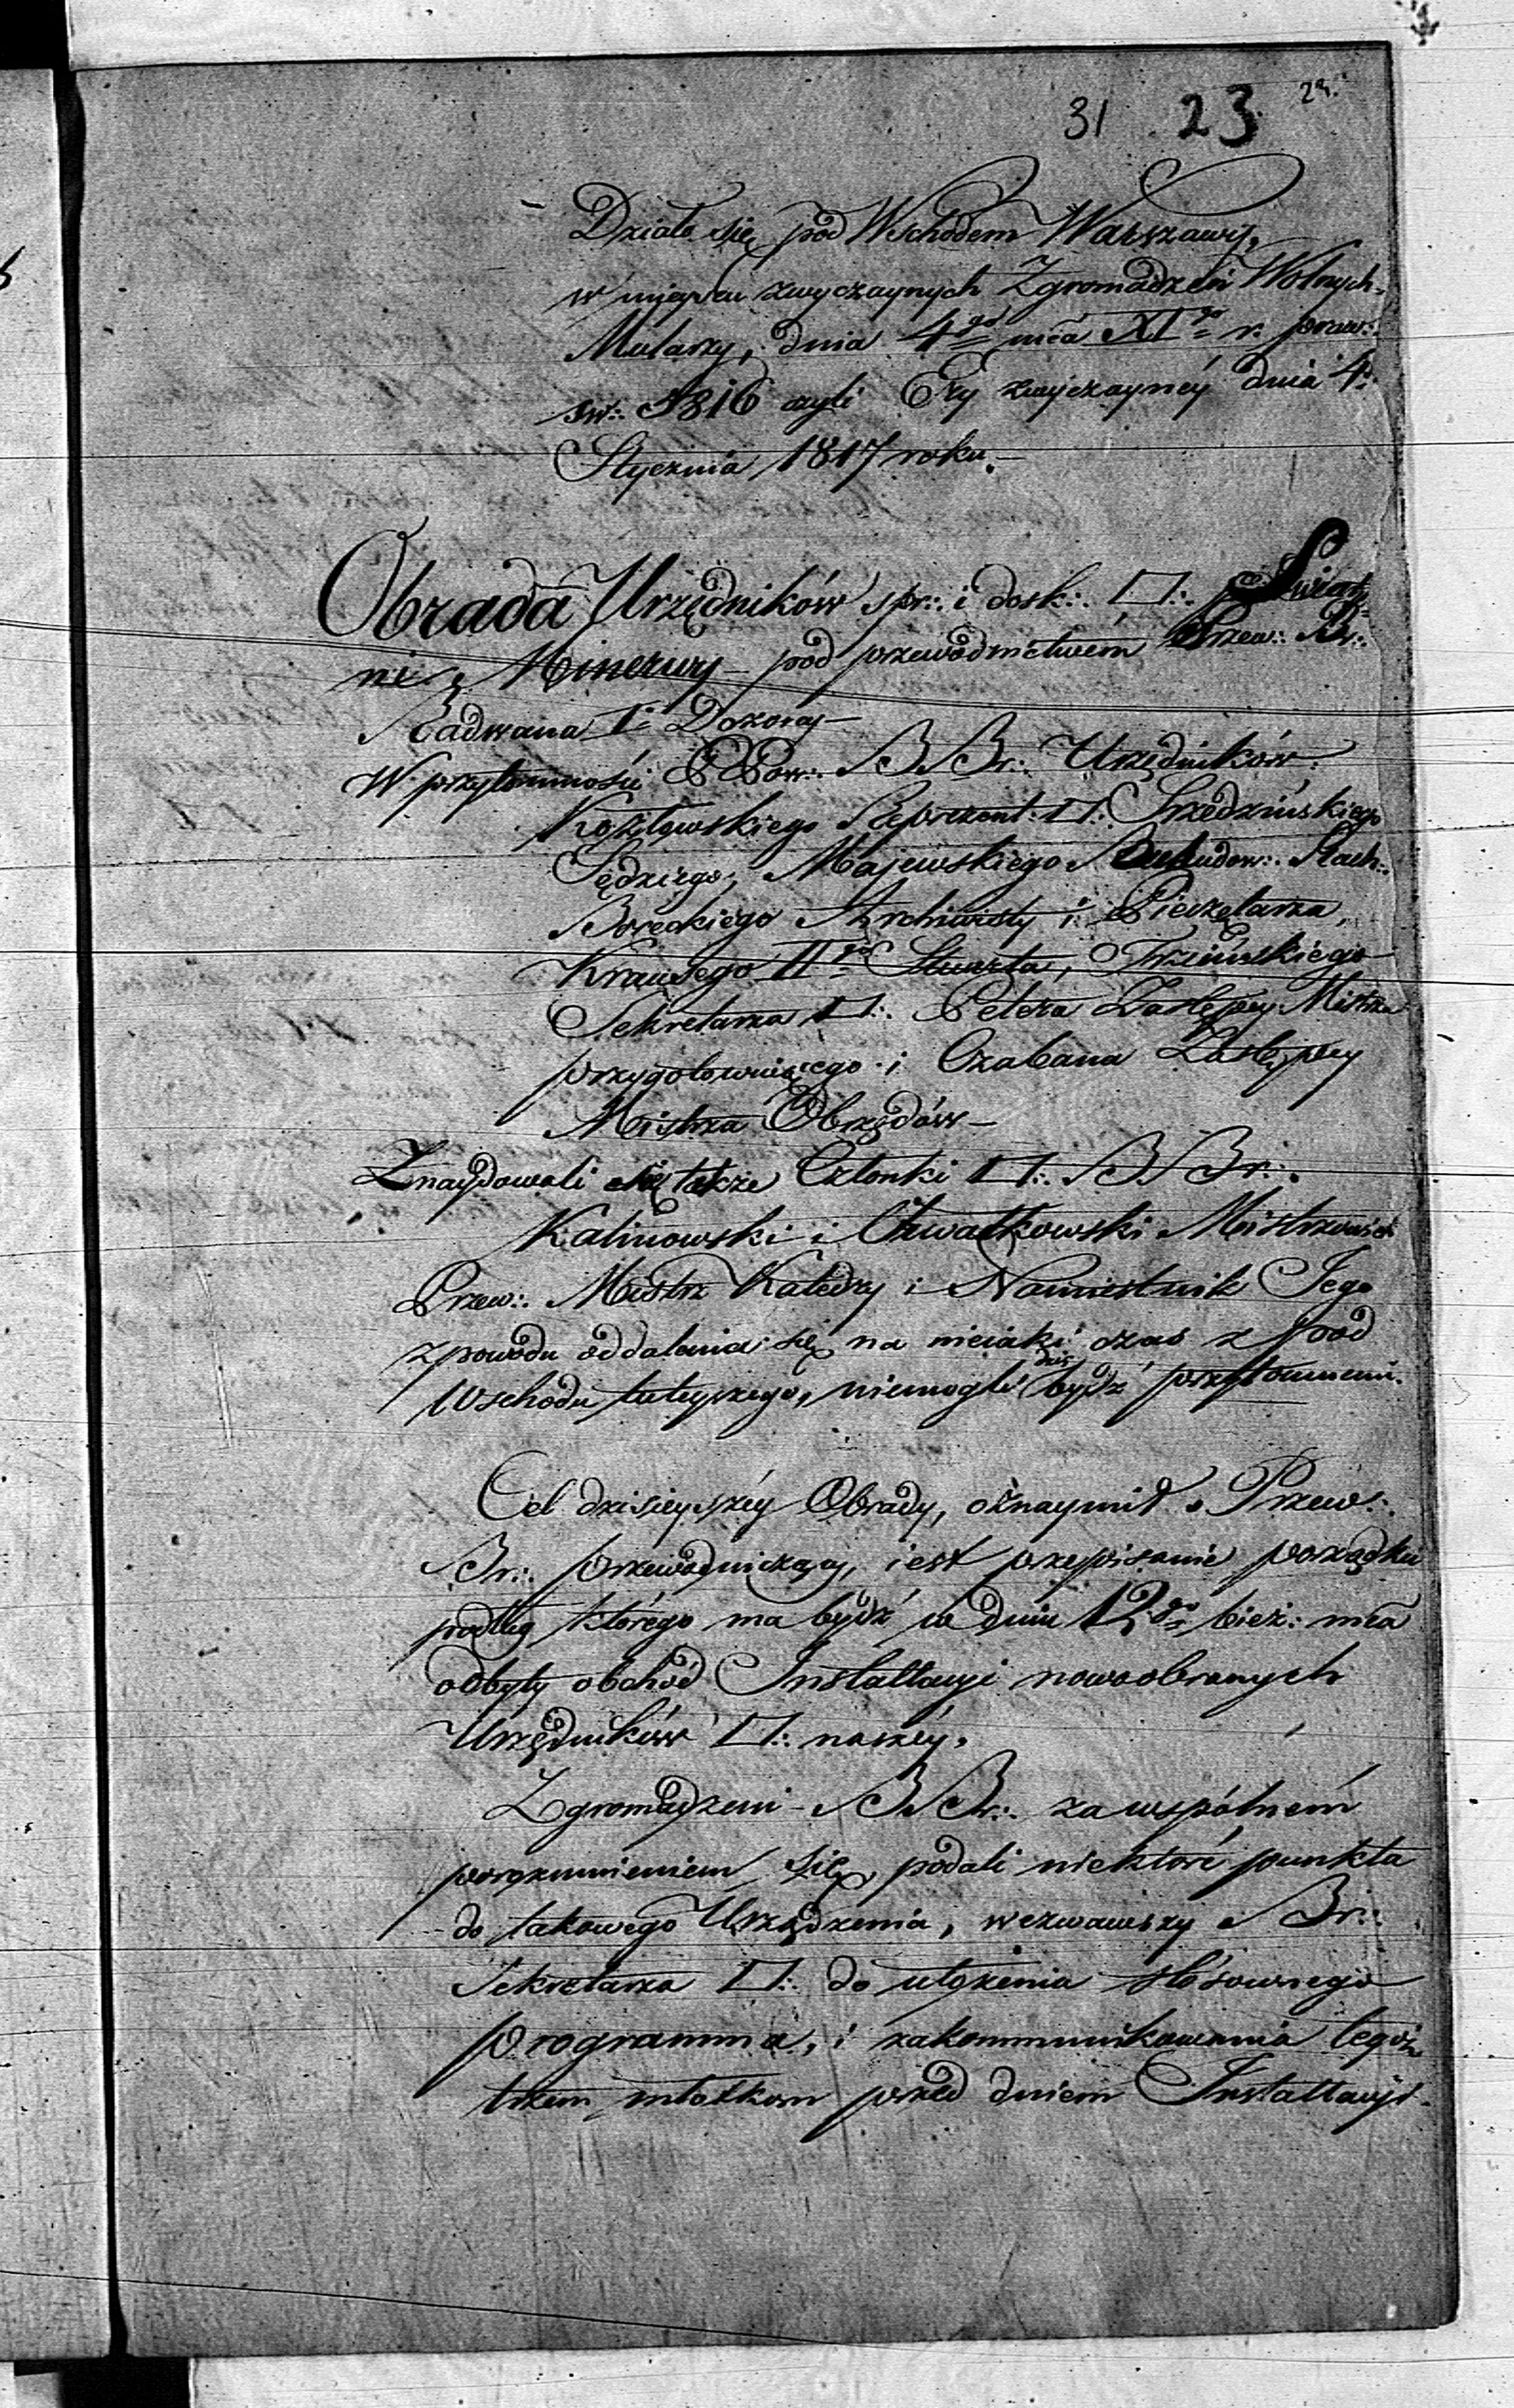 31 23
Działo się pod Wschodem Warszawy,
w mieyscu zwyczaynych Zgromadzeń Wolnych-
Mularzy, dnia 4go mca XIgo r: praw:
św:. 5816 czyli Ery zwyczayney dnia 4.
Stycznia 1817 roku.—
Obrada Urzędników spr:. i dosk:. □:. Świąty-
ni Minerwy pod przewodnictwem Przew:. Br:.
Radwana 1o Dozorcy—
W przytomności PPow:. BBr:. Urzędników:
Kozłowskiego Reprezent: □: Srzedzińskiego
Sędziego, Majewskiego Budow:. Rach:.
Boreckiego Archiwisty i Pieczętarza,
Krausego IIgo Stuarta, Trzcińskiego
Sekretarza □:. Petera Zastępcy Mistrza
przygotowuiącego i Czabana Zastępcy
Mistrza Obrzędów—
Znaydowali się także Członki □:. BBr:.
Kalinowski i Chwałkowski Mistrzowie
Przew:. Mistrz Katedry i Namiestnik Jego
z powodu oddalenia się na nieiaki czas z pod
Wschodu tuteyszego, niemogli dziś bydź przytomnemi.
Cel dzisieyszéy Obrady, oznaymił Przew:.
Br:. przewodniczący, iest przepisanie porządku
podług którego ma bydź w dniu 12go bież: mca
odbyty obchód Installacyi nowoobranych
Urzędników □:. naszéy.
Zgromadzeni BBr:. za wspólném
porozumieniem się, podali niektóre punkta
do takowego Urządzenia, wezwawszy Br:.
Sekretarza □:. do ułożenia stósownego
programma, i zakommunikowania tegoż
trzem młotkom przed dniem Installacyi.